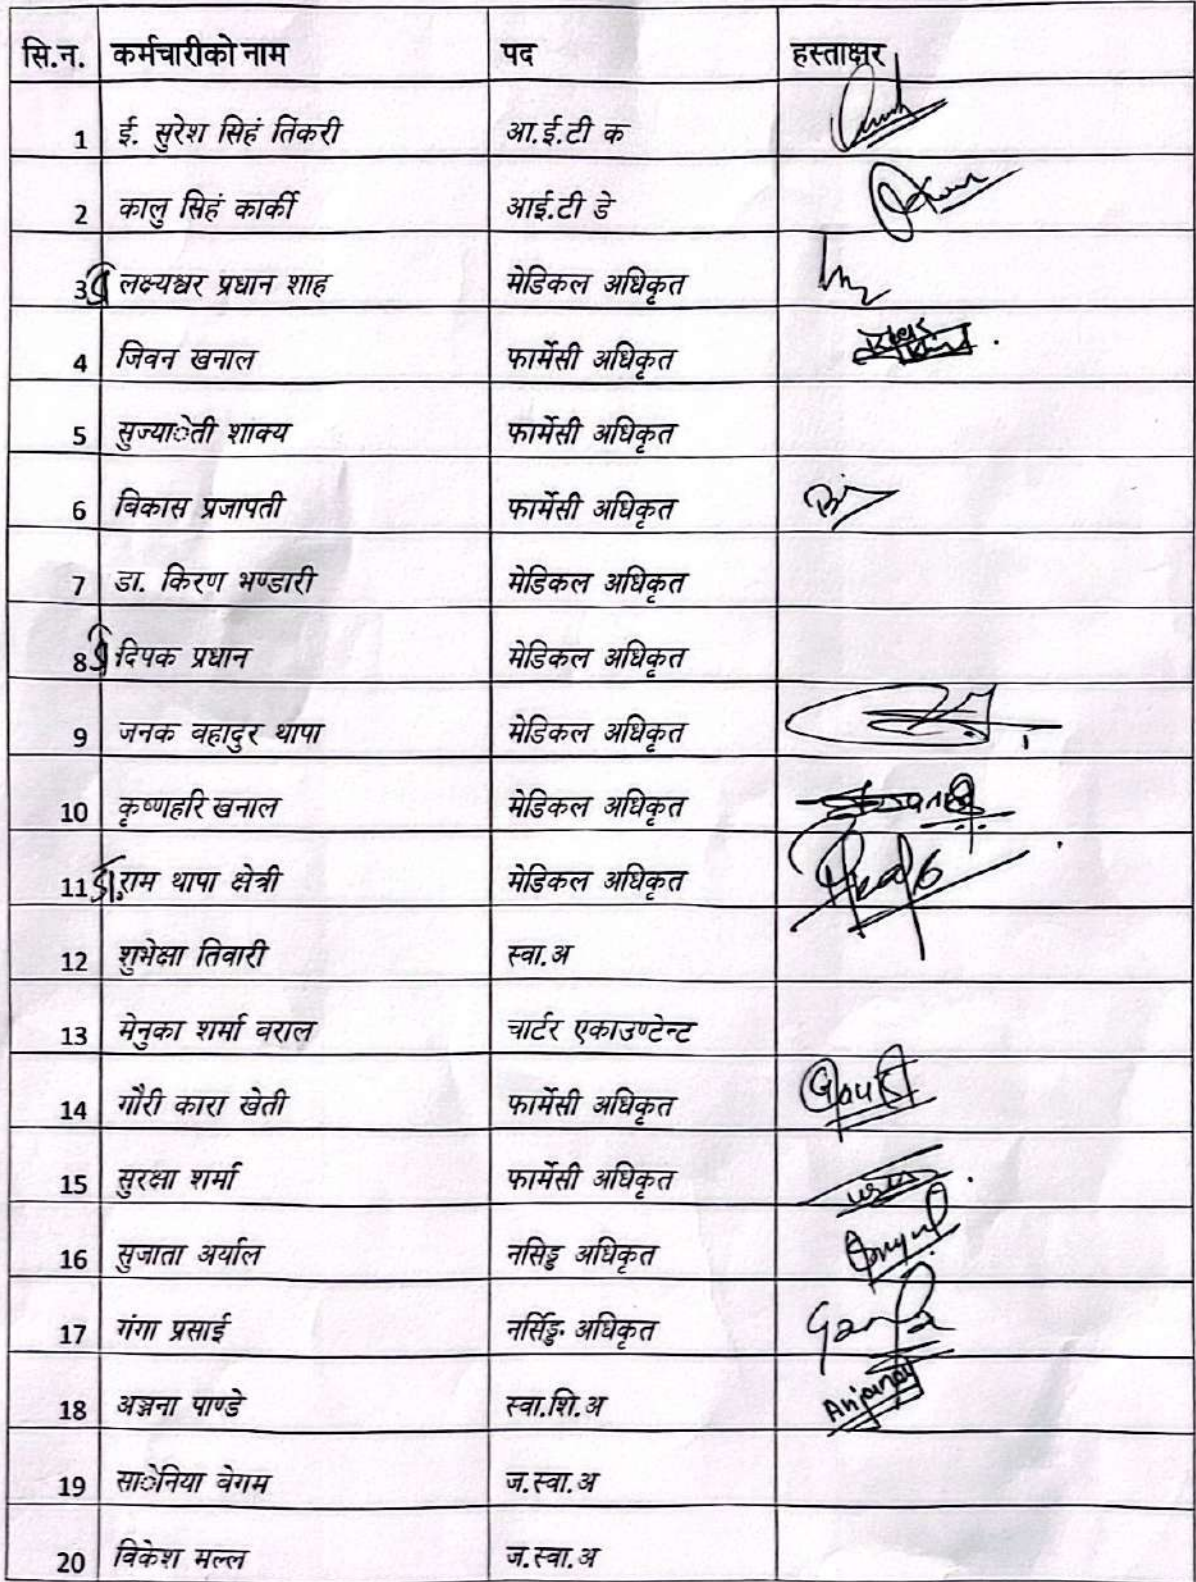 सि.न. कर्मचारीको नाम पद हस्ताक्षर
1 ई. सुरेश सिहं तिंकरी आ.ई.टी क
2 कालु सिहं कार्की आई.टी डे
3 लक्ष्यश्वर प्रधान शाह मेडिकल अधिकृत
4 जिवन खनाल फार्मेसी अधिकृत
5 सुज्याेती शाक्य फार्मेसी अधिकृत
6 विकास प्रजापती फार्मेसी अधिकृत
7 डा. किरण भण्डारी मेडिकल अधिकृत
8 दिपक प्रधान मेडिकल अधिकृत
9 जनक वहादुर थापा मेडिकल अधिकृत
10 कृष्णहरि खनाल मेडिकल अधिकृत
11 राम थापा क्षेत्री मेडिकल अधिकृत
12 शुभेक्षा तिवारी स्वा.अ
13 मेनुका शर्मा वराल चार्टर एकाउण्टेन्ट
14 गौरी कारा खेती फार्मेसी अधिकृत Gauri
15 सुरक्षा शर्मा फार्मेसी अधिकृत
16 सुजाता अर्याल नसिङ्ग अधिकृत
17 गंगा प्रसाई नर्सिङ्ग अधिकृत Ganga
18 अञ्जना पाण्डे स्वा.शि.अ Anjana
19 साेनिया वेगम ज.स्वा.अ
20 विकेश मल्ल ज.स्वा.अ